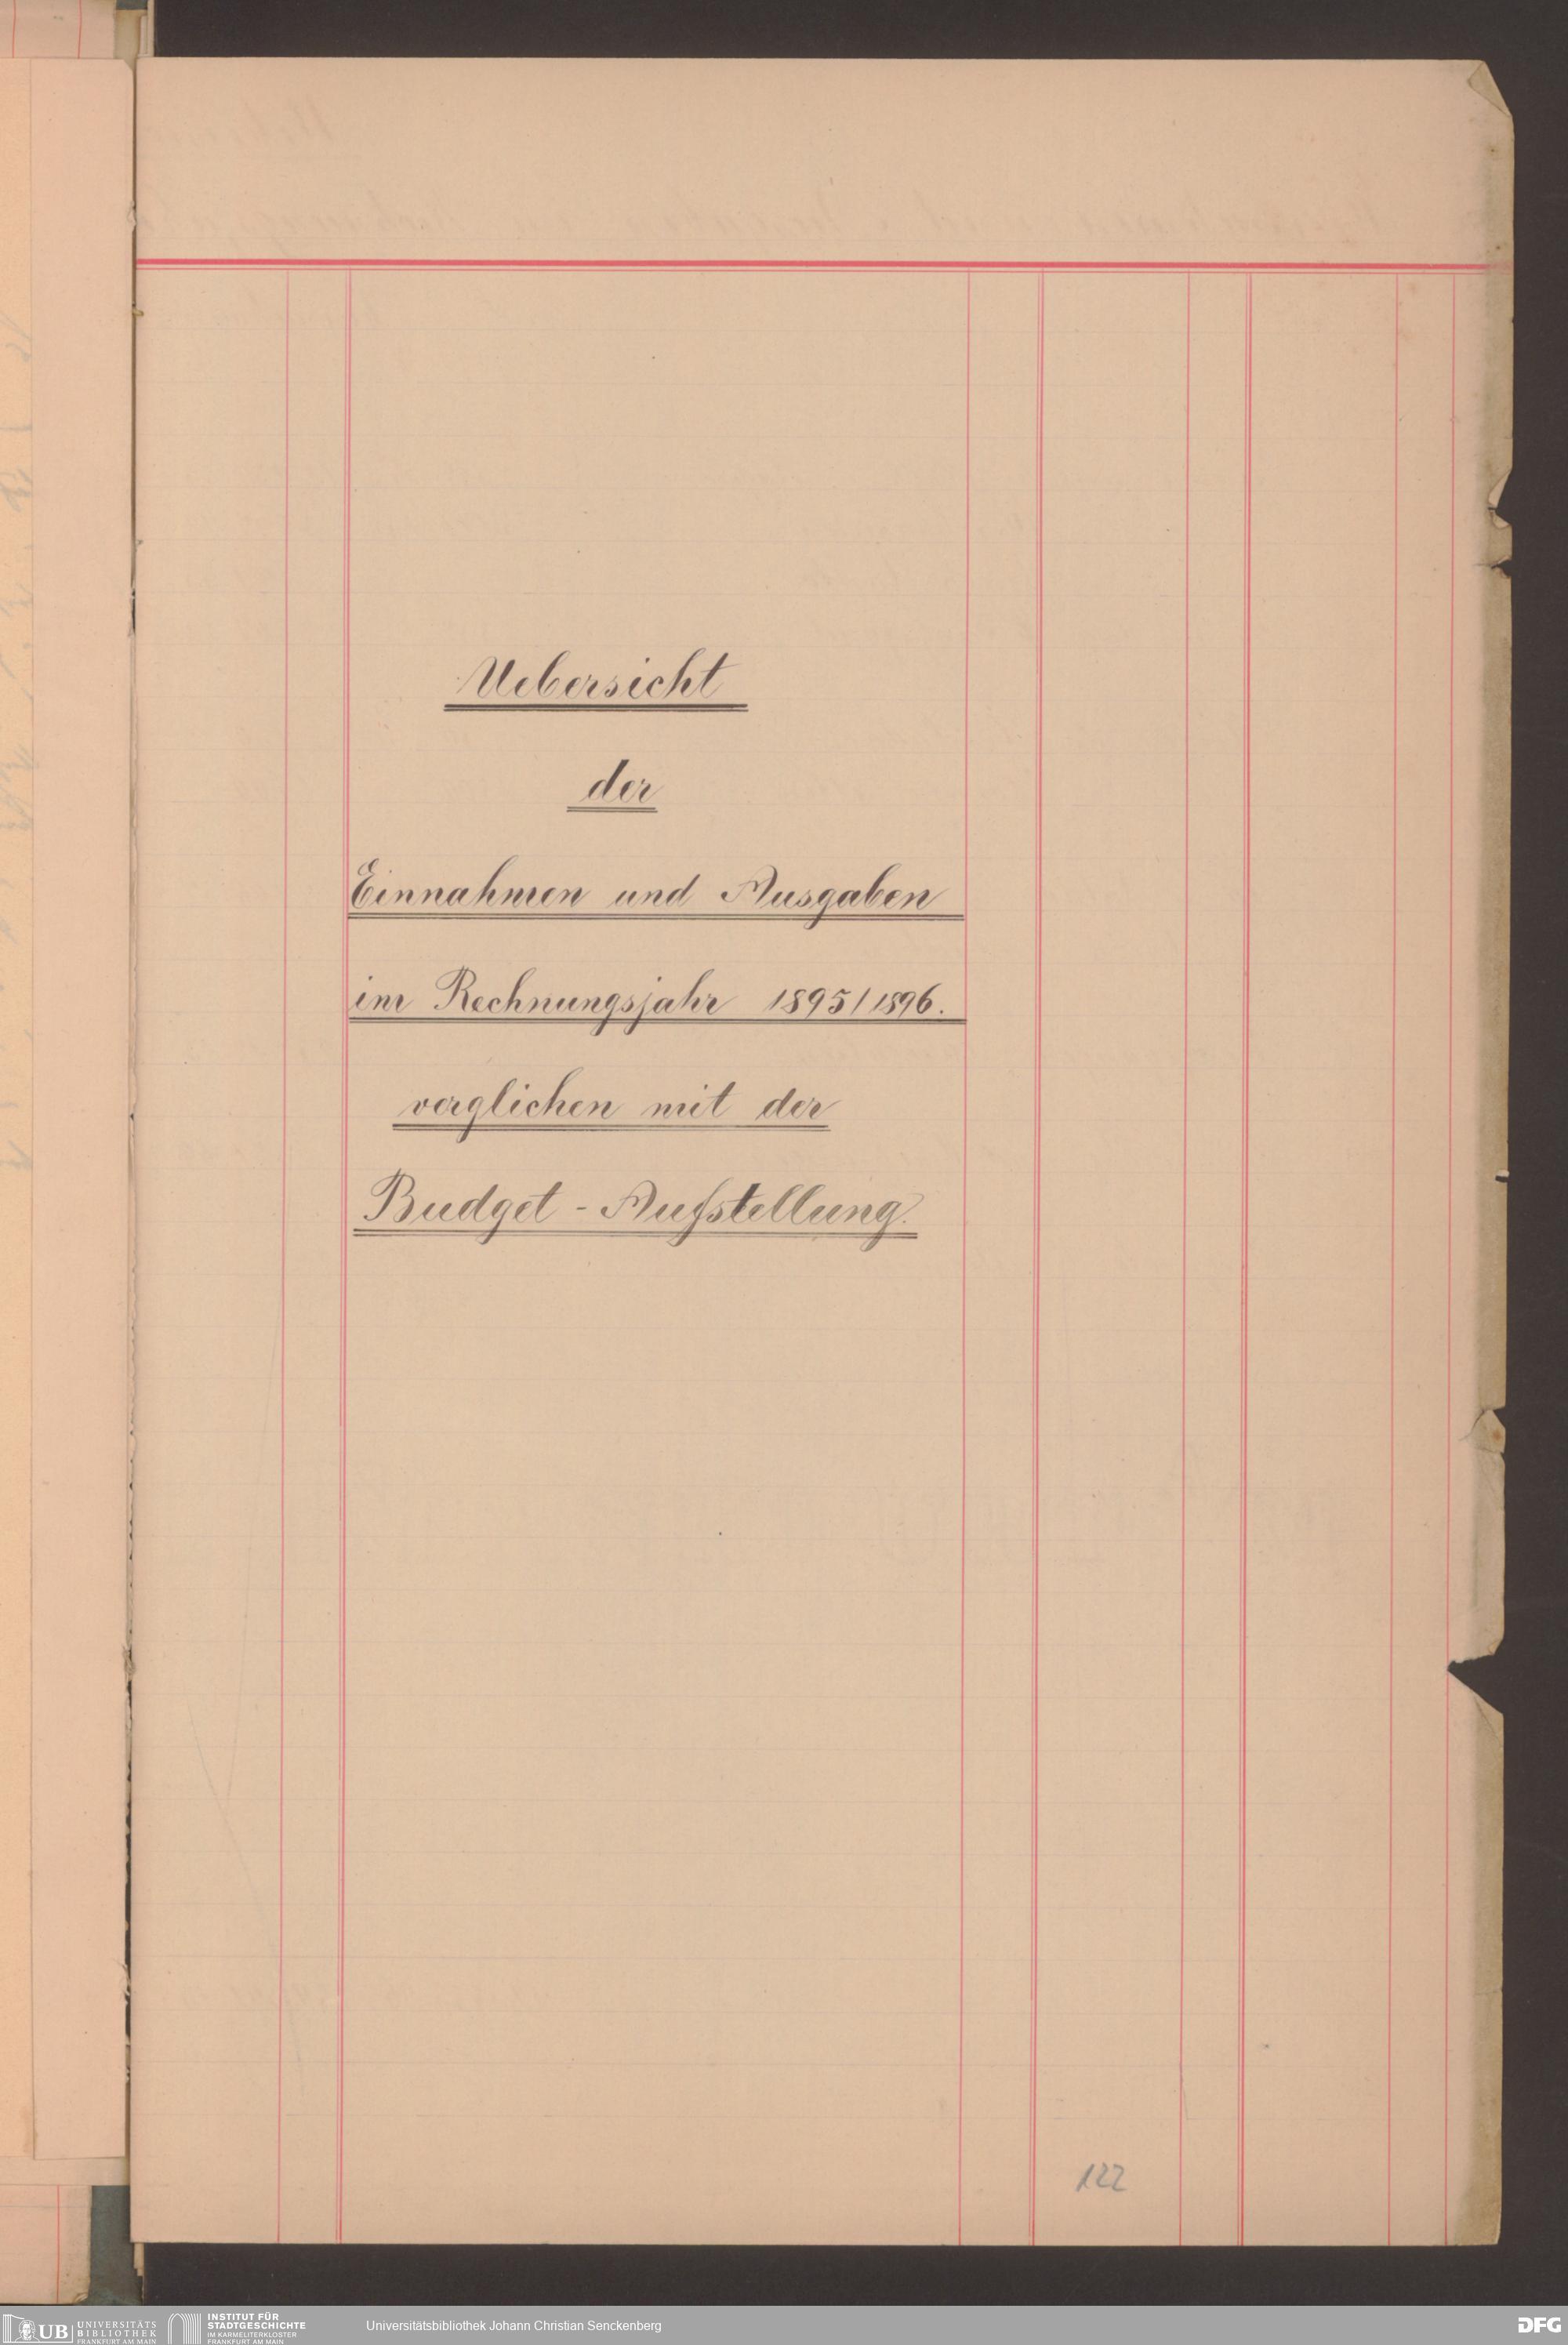 Uebersicht
der
Einnahmen und Ausgaben
im Rechnungsjahr 1895/1896.
verglichen mit der
Budget - Aufstellung.
122
UB UNIVERSITÄTS
BIBLIOTHEK
FRANKFURT AM MAIN
INSTITUT FÜR
STADTGESCHICHTE
IM KARMELITERKLOSTER
FRANKFURT AM MAIN
Universitätsbibliothek Johann Christian Senckenberg
DFG